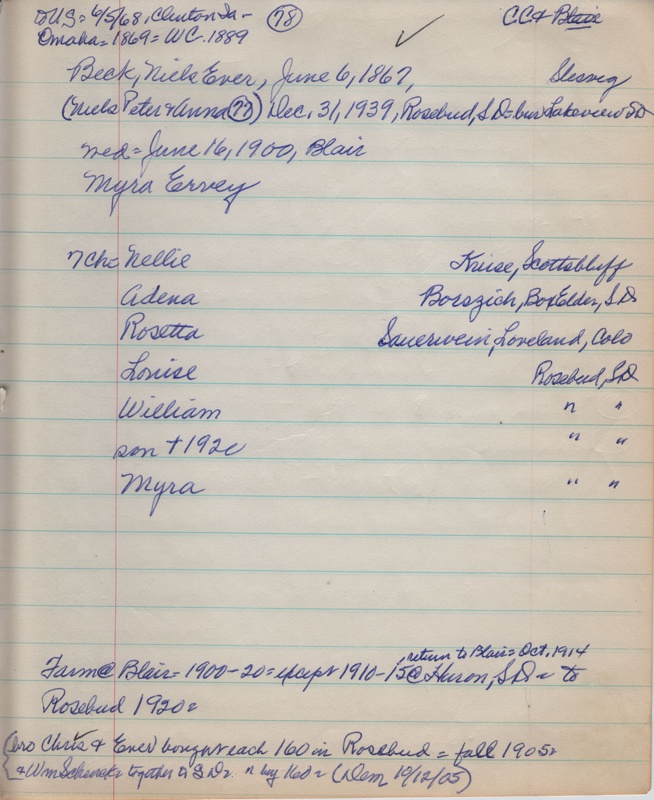 to US = 6/5/68, Clinton Ia - (78) C.C. & Blair
Omaha = 1869 = WC. 1889
Beck, Niels Ever, June 6, 1867, Slesvig
(Niels Peter & Anna (77)) Dec. 31, 1939, Rosebud, S.D. = bur Lakeview SD
wed = June 16, 1900, Blair
Myra Ervey
7 ch = Nellie Kruse, Scottsbluff
Adena Borszich, Box Elder, S.D
Rosetta Sauerwein, Loveland, Colo
Louise Rosebud, S.D
William " "
son + 192 " "
Myra " "
, return to Blair = Oct. 1914
Farm @ Blair = 1900-20 = except 1910-15 @ Huron, S.D = to
Rosebud 1920 =
(bro Chris & Ever) bought each 160 in Rosebud = fall 1905 =
& Wm Schenck = together to S.D = n buy 160 = (Dem 10/12/05)